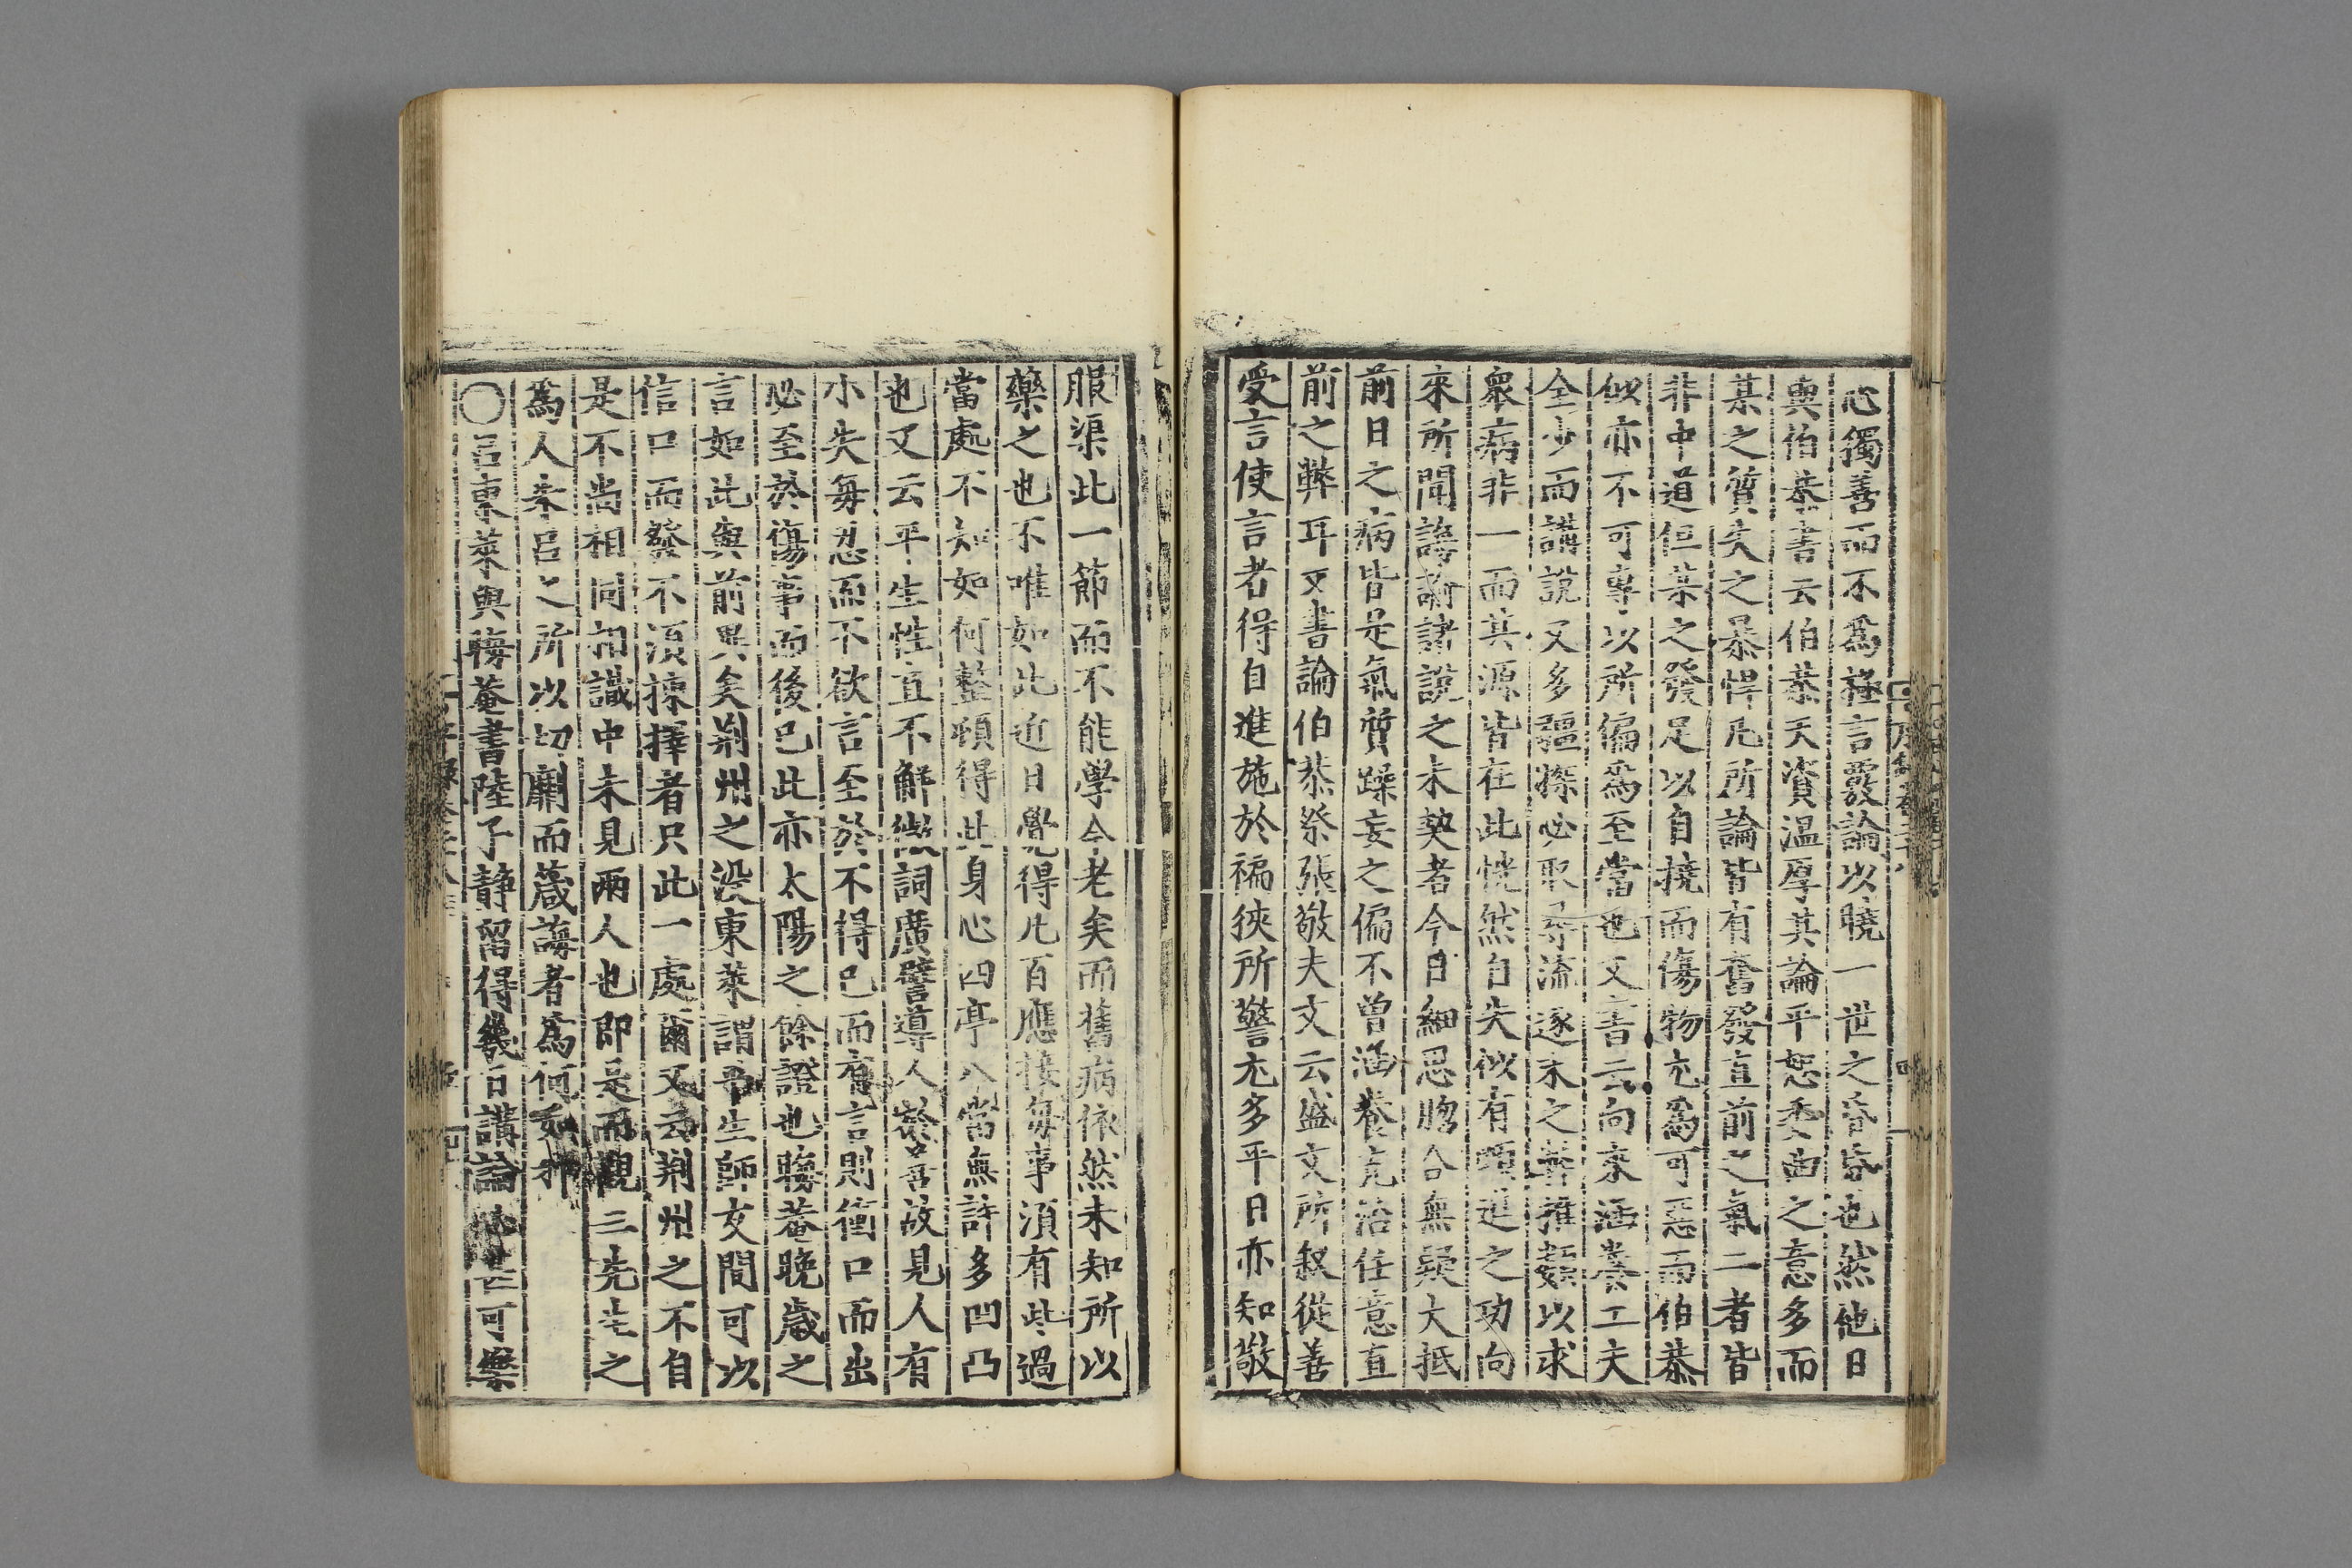 心獨善而不爲極言覈論以曉一世之昏昏也然他日
與伯恭書云伯恭天資溫厚其論平恕委曲之意多而
某之質失之暴悍凡所論皆有奮發直前之氣二者皆
非中道但某之發足以自撓而傷物尤爲可惡而伯恭
似亦不可專以所偏爲至當也又書云向來涵養工夫
全少而講說又多彊探必取尋流逐末之弊推類以求
衆病非一而其源皆在此恍然自失似有頓進之功向
來所聞誨諭諸說之未契者今日細思脗合無疑大抵
前日之病皆是氣質躁妄之偏不曾涵養克治任意直
前之弊耳又書論伯恭祭張敬夫文云盛文所叙從善
受言使言者得自進施於褊狹所警尤多平日亦知敬
服渠此一節而不能學今老矣而舊病依然未知所以
藥之也不唯如此近日覺得凡百應接每事須有些過
當處不知如何整頓得此身心四亭八當無許多凹凸
也又云平生性直不解微詞廣譬導人於善故見人有
小失每忍而不欲言至於不得已而有言則衝口而出
必至於傷事而後已此亦太陽之餘證也晦菴晚歲之
言如此與前異矣荆州之沒東萊謂吾生師友間可以
信口而發不須揀擇者只此一處爾又云荆州之不自
是不尚相同相識中未見兩人也即是而觀三先生之
爲人朱呂之所以切劘而箴誨者爲何如邪
○呂東萊與晦菴書陸子靜留得幾日講論必甚可樂